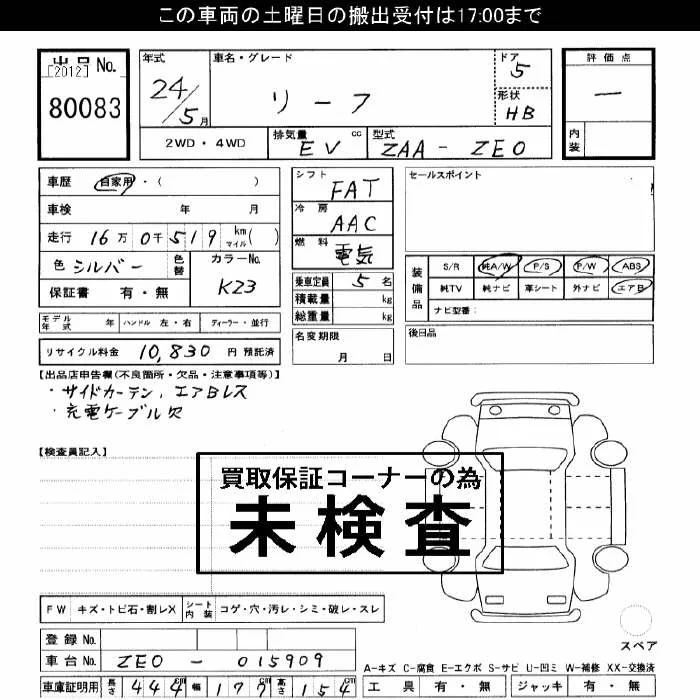 この車両の土曜日の搬出受付は17:00まで
出品 No.
[2012]
80083
年式
24/5月
車名・グレード
リーフ
ドア
5
形状
HB
評価点
―
内装
2WD・4WD
排気量 cc
EV
型式
ZAA-ZE0
車歴 自家用・( )
車検 年 月
走行 16万0千519 km マイル( )
色 シルバー
色替
カラーNo.
K23
保証書 有・無
シフト
FAT
冷房
AAC
燃料
電気
乗車定員 5 名
積載量 kg
総重量 kg
名変期限
月 日
セールスポイント
装備品
S/R 純A/W P/S P/W ABS
純TV 純ナビ 革シート 外ナビ エアB
ナビ型番:
後日品
モデル年式 年 ハンドル 左・右 ディーラー・並行
リサイクル料金 10,830 円 預託済
【出品店申告欄(不良箇所・欠品・注意事項等)】
・サイドカーテン、エアBレス
・充電ケーブル欠
【検査員記入】
買取保証コーナーの為
未検査
FW キズ・トビ石・割レX シート内装 コゲ・穴・汚レ・シミ・破レ・スレ
登録 No.
車台 No. ZE0-015909
車庫証明用 長さ 444cm 幅 177cm 高さ 154cm
スペア
A-キズ C-腐食 E-エクボ S-サビ U-凹ミ W-補修 XX-交換済
工具 有・無 ジャッキ 有・無